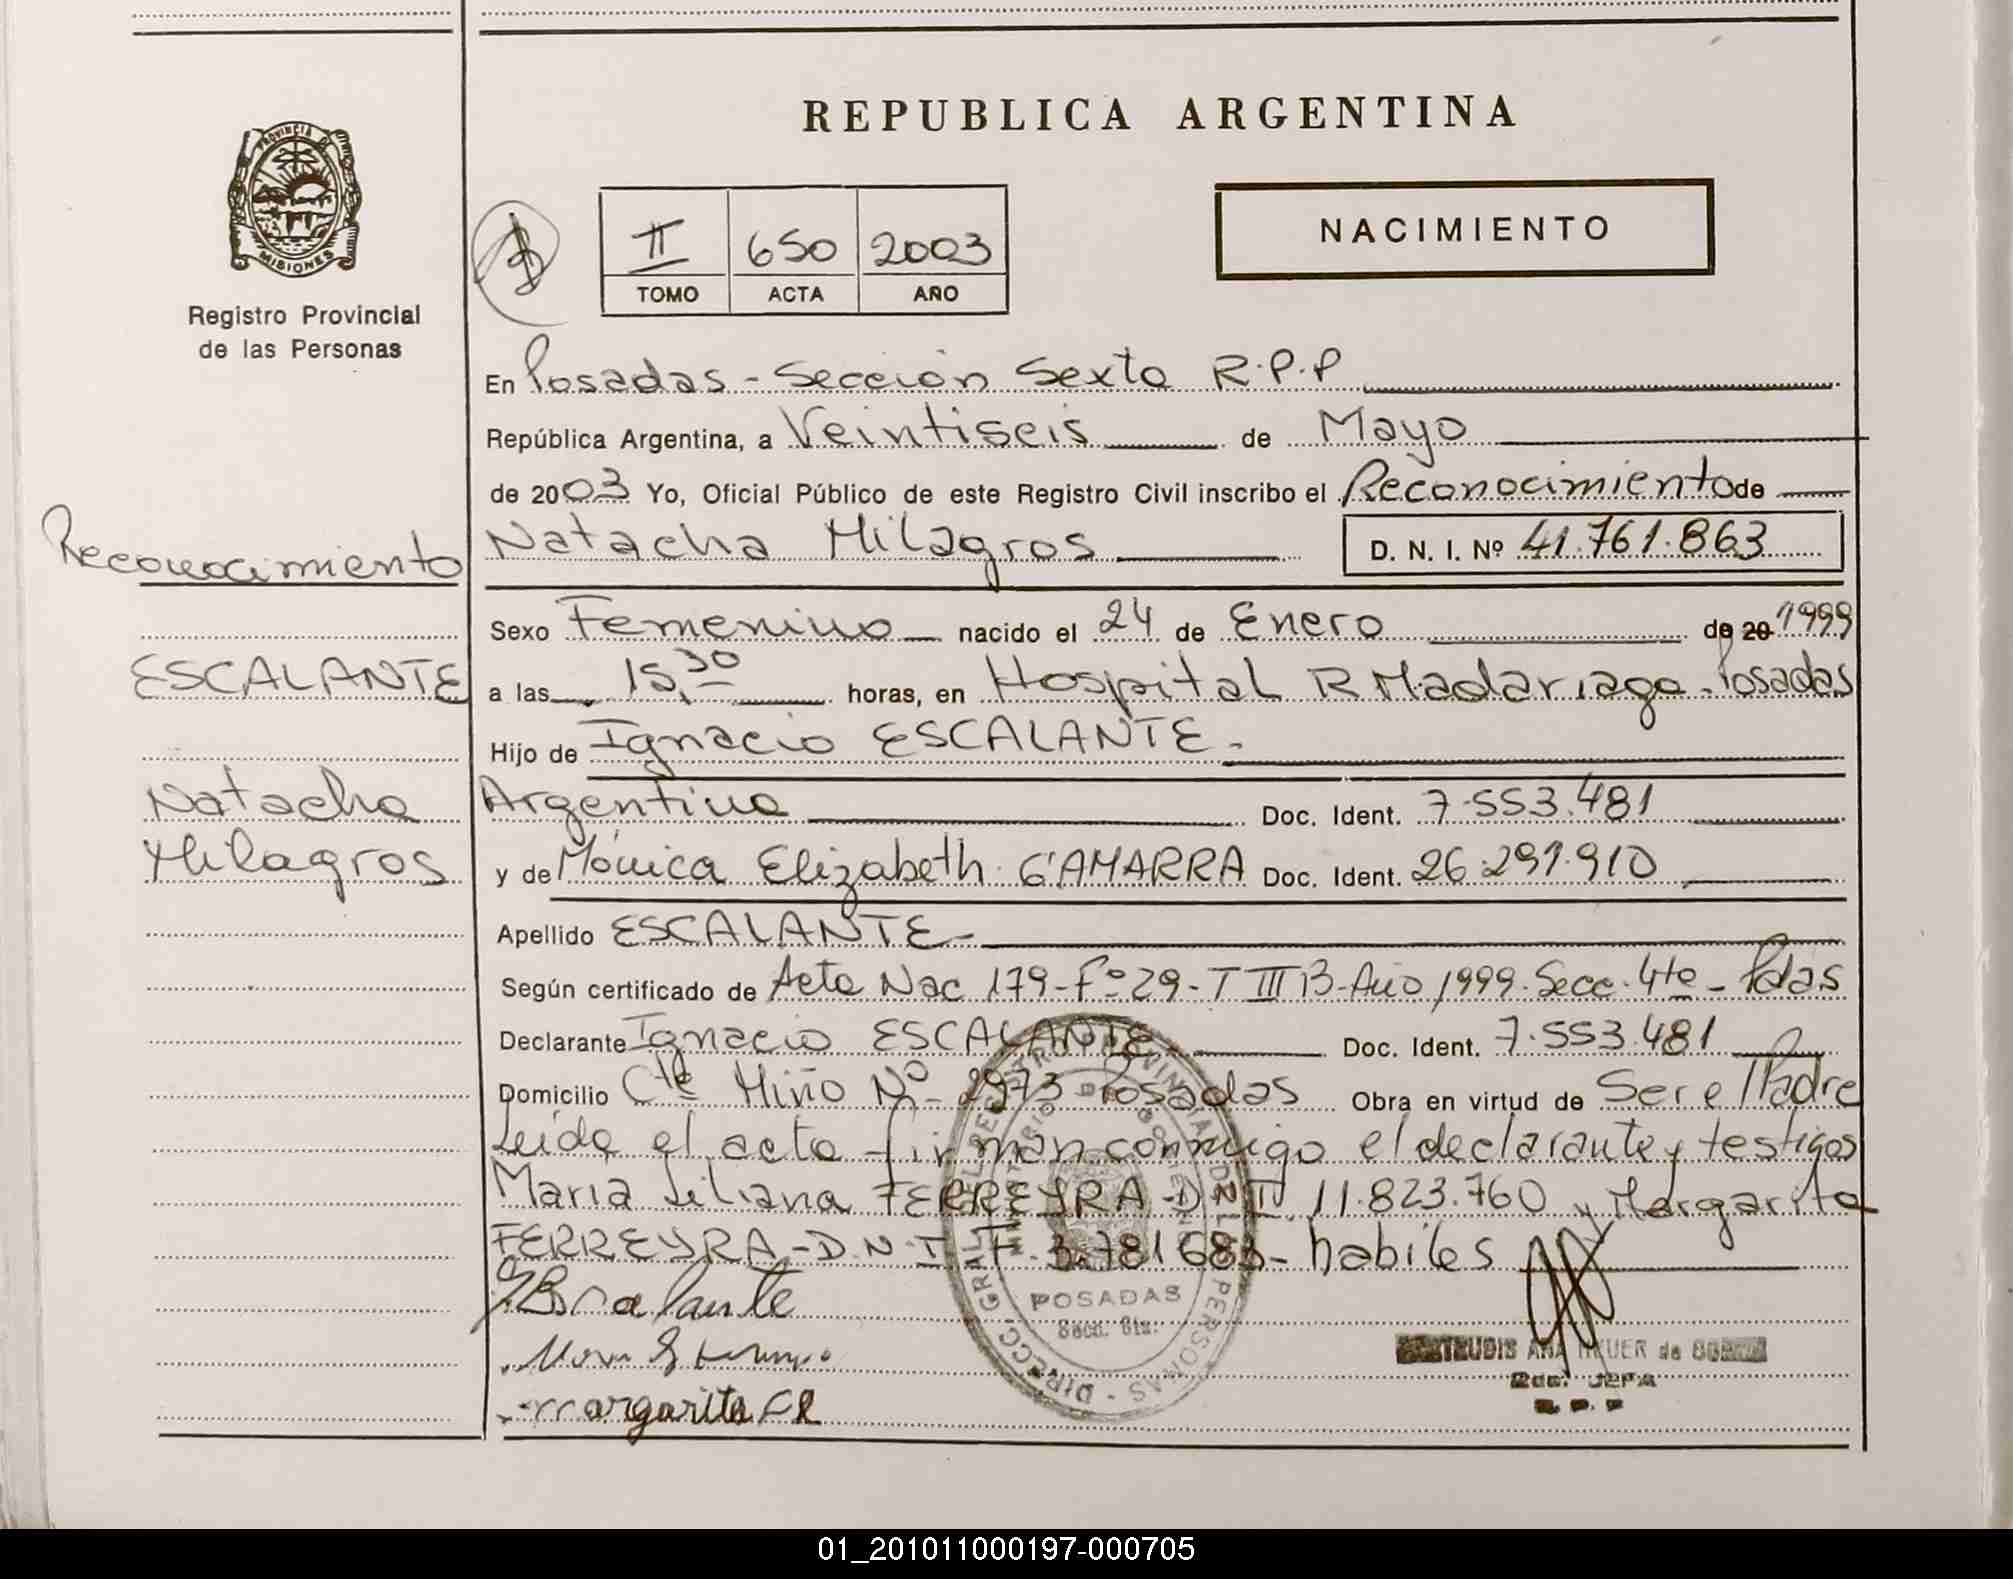 REPUBLICA ARGENTINA
PROVINCIA DE
MISIONES
Registro Provincial
de las Personas
II 650 2003
TOMO ACTA AÑO
NACIMIENTO
En Posadas - Sección Sexta R.P.P
República Argentina, a Veintiseis de Mayo
de 2003 Yo, Oficial Público de este Registro Civil inscribo el Reconocimiento de
Natacha Milagros D. N. I. Nº 41.761.863
Reconocimiento
Sexo Femenino nacido el 24 de Enero de 20 1999
ESCALANTE
a las 15,30 horas, en Hospital R Madariaga - Posadas
Hijo de Ignacio ESCALANTE -
Natacha
Milagros
Argentina Doc. Ident. 7.553.481
y de Mónica Elizabeth GAMARRA Doc. Ident. 26.291.910
Apellido ESCALANTE -
Según certificado de Acta Nac 179 - Fº 29 - T III B - Año 1999 - Secc. 4ta - Pdas
Declarante Ignacio ESCALANTE Doc. Ident. 7.553.481
Domicilio Cte Miño Nº 2973 Posadas Obra en virtud de Ser el Padre
Leída el acta firman conmigo el declarante y testigos
Maria Liliana FERREYRA - D.N.I. 11.823.760 y Margarita
FERREYRA - D.N.I. F. 3.781683 - habiles
DIRECC. GRAL. DEL REGISTRO PROVINCIAL DE LAS PERSONAS
MINISTERIO DE GOBIERNO
POSADAS
Secc. 6ta.
Escalante
Margarita
GERTRUDIS ANA de
JEFA
R. P. P
01_201011000197-000705